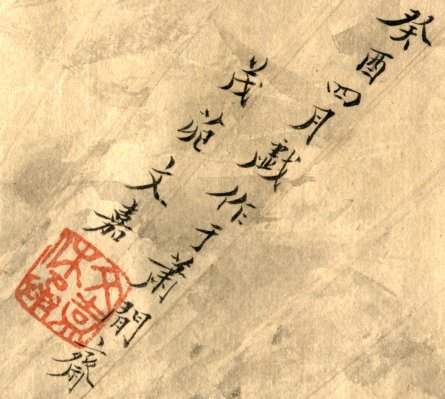 癸酉四月戲作于蕭閒齋
茂苑文嘉